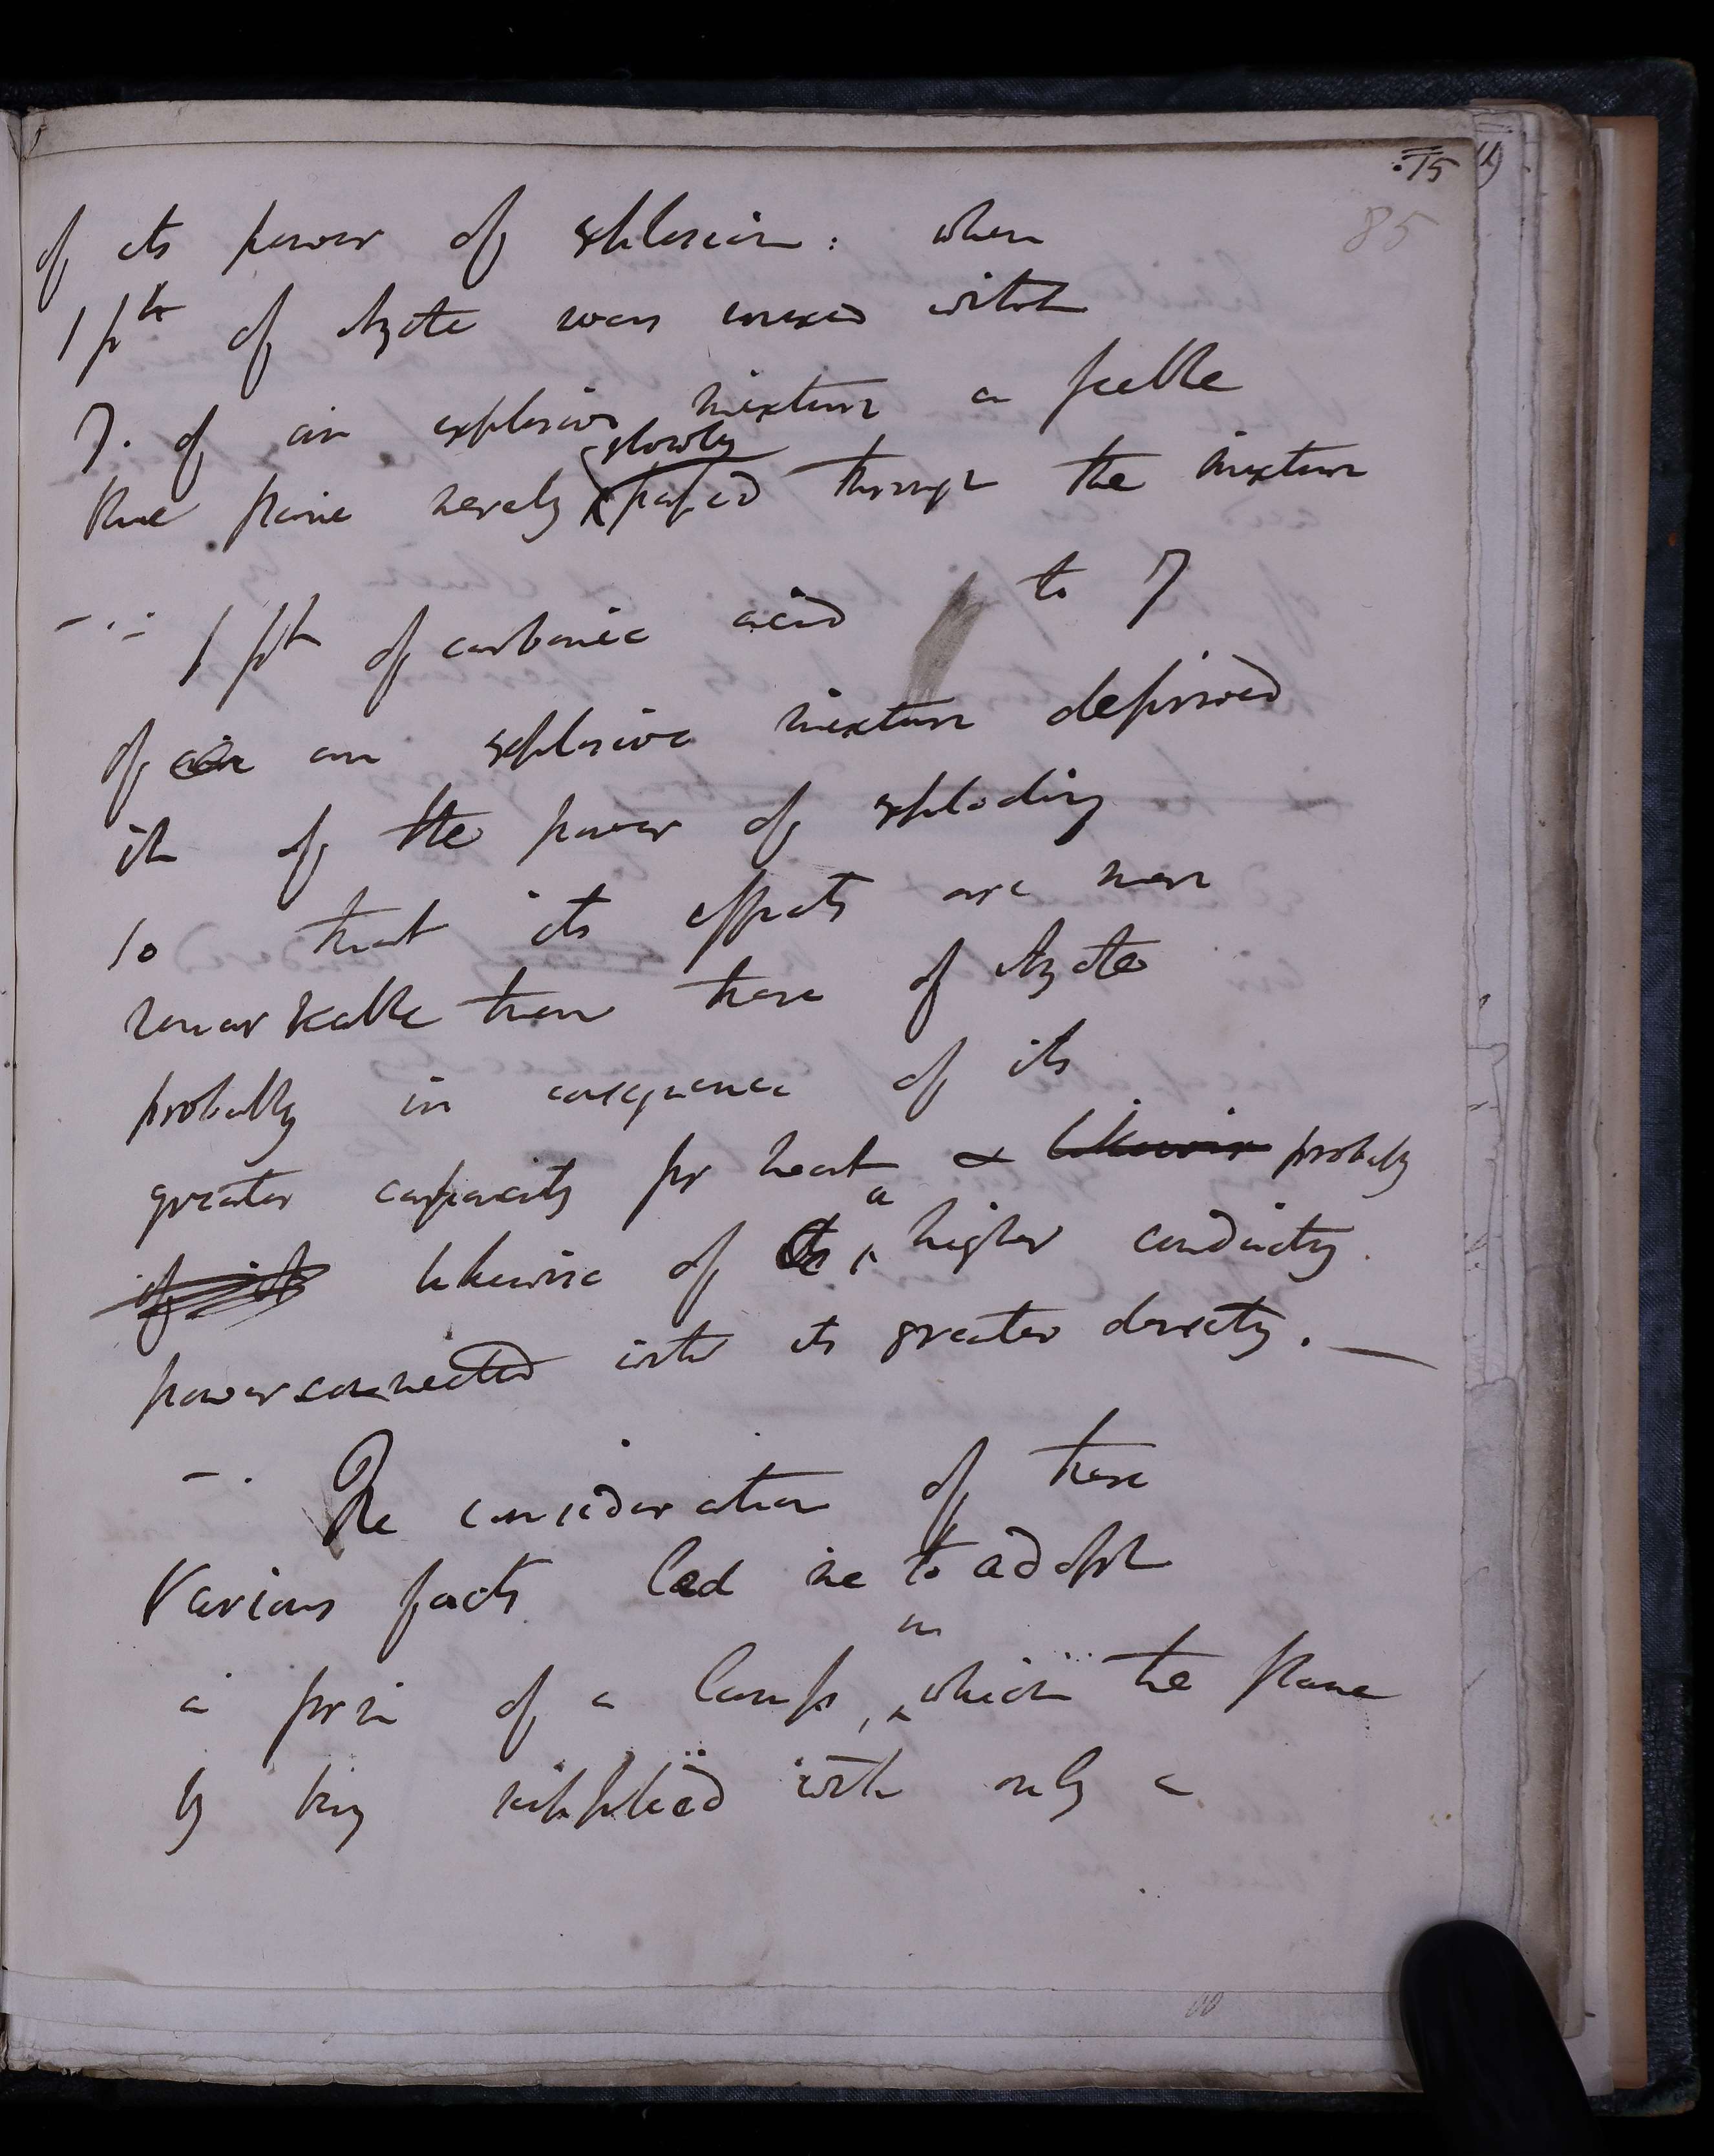 15
85
of its power of explosion: when
1 pt of Azote was mixed with
7. of an explosive mixture a feeble
slowly
blue flame merely passed through the mixture
1 pt of carbonic acid to 7
of air an explosive mixture deprived
it of the power of exploding
so that its effects are more
remarkable than those of Azote
probably in consequence of its
greater capacity for heat & likewise probably
a
of its likewise of higher conducting
power connected with its greater density. —
—. The consideration of these
various facts led me to adopt
in
a form of a lamp, which the flame
by being supplied with only a